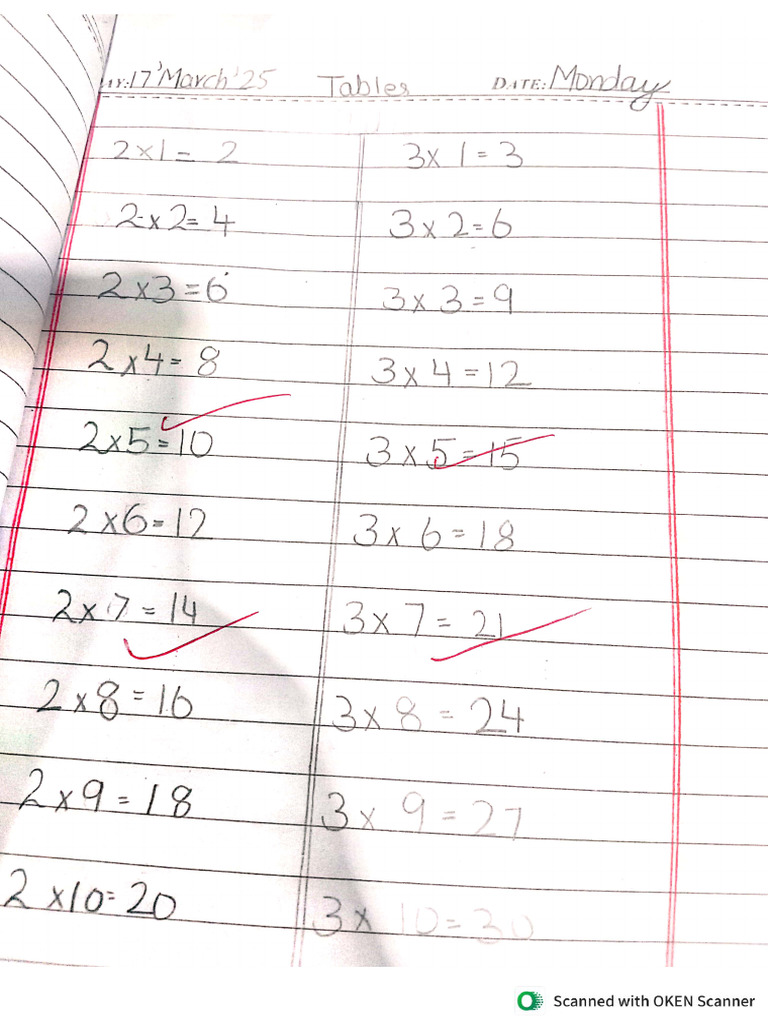 AY: 17 March '25 Tables DATE: Monday
2 x 1 = 2 3 x 1 = 3
2 x 2 = 4 3 x 2 = 6
2 x 3 = 6 3 x 3 = 9
2 x 4 = 8 3 x 4 = 12
2 x 5 = 10 3 x 5 = 15
2 x 6 = 12 3 x 6 = 18
2 x 7 = 14 3 x 7 = 21
2 x 8 = 16 3 x 8 = 24
2 x 9 = 18 3 x 9 = 27
2 x 10 = 20 3 x 10 = 30
Scanned with OKEN Scanner